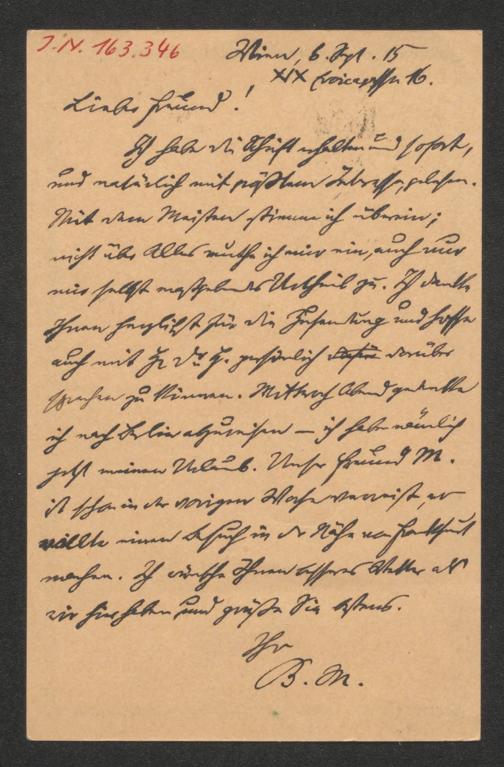 J.N. 163.346
Wien, 6. Sept. 15
XIX 16.
Lieber Freund!
Ich habe die Schrift erhalten und sofort,
und natürlich mit größtem Interesse, gelesen.
Mit dem Meisten stimme ich überein;
nicht über Alles muthe ich mir ein, auch nur
mir selbst maßgebendes Urtheil zu. Ich danke
Ihnen herzlichst für die Zusendung und hoffe
auch mit Hr. Dr. H. persönlich darüber
sprechen zu können. Mittwoch Abend gedenke
ich nach Berlin abzureisen – ich habe nämlich
jetzt meinen Urlaub. Unser Freund M.
ist schon in der vorigen Woche verreist, er
wollte einen Besuch in der Nähe von Frankfurt
machen. Ich wünsche Ihnen besseres Wetter als
wir hier haben und grüße Sie bestens.
Ihr
B. M.